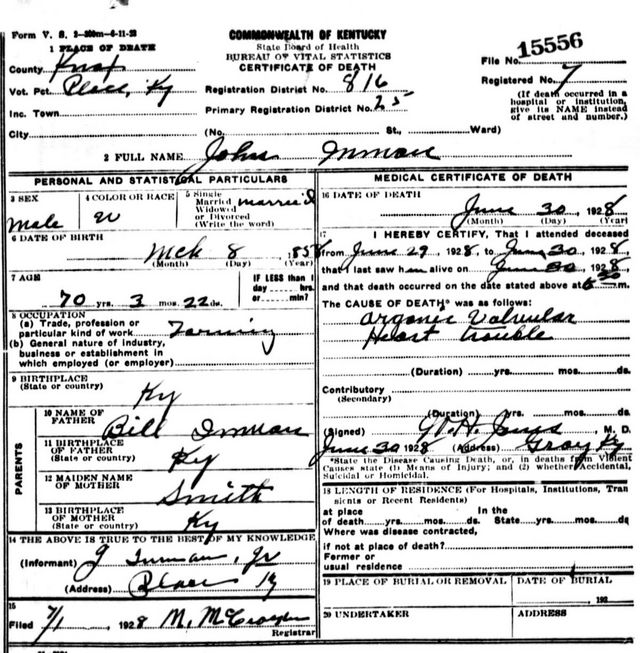 Form V. S. 2-300m-6-11-23
COMMONWEALTH OF KENTUCKY
State Board of Health
BUREAU OF VITAL STATISTICS
CERTIFICATE OF DEATH
File No. 15556
Registered No. 7
(If death occurred in a hospital or institution, give its NAME instead of street and number.)
1 PLACE OF DEATH
County Knox
Vot. Pct. Place, Ky
Registration District No. 816
Inc. Town
Primary Registration District No. 25
City (No. St., Ward)
2 FULL NAME John Inman
PERSONAL AND STATISTICAL PARTICULARS
3 SEX Male
4 COLOR OR RACE W
5 Single Married Widowed or Divorced (Write the word) married
6 DATE OF BIRTH
Mch 8 1858
(Month) (Day) (Year)
7 AGE
70 yrs. 3 mos. 22 ds.
IF LESS than 1 day hrs. or min.?
8 OCCUPATION
(a) Trade, profession or particular kind of work Farming
(b) General nature of industry, business or establishment in which employed (or employer)
9 BIRTHPLACE
(State or country) Ky
PARENTS
10 NAME OF FATHER Bill Inman
11 BIRTHPLACE OF FATHER (State or country) Ky
12 MAIDEN NAME OF MOTHER Smith
13 BIRTHPLACE OF MOTHER (State or country) Ky
14 THE ABOVE IS TRUE TO THE BEST OF MY KNOWLEDGE
(Informant) J Inman, Jr
(Address) Place Ky
15
Filed 7/1 1928 M.
Registrar
MEDICAL CERTIFICATE OF DEATH
16 DATE OF DEATH
June 30 1928
(Month) (Day) (Year)
17 I HEREBY CERTIFY, That I attended deceased
from June 29, 1928, to June 30, 1928
that I last saw him alive on June 30, 1928,
and that death occurred on the date stated above at m.
The CAUSE OF DEATH* was as follows:
Organic Valvular
Heart trouble
(Duration) yrs. mos. ds.
Contributory
(Secondary)
(Duration) yrs. mos. ds.
(Signed) Jones M. D.
June 30 1928 (Address) Gray Ky
*State the Disease Causing Death, or, in deaths from Violent Causes state (1) Means of Injury; and (2) whether Accidental, Suicidal or Homicidal.
18 LENGTH OF RESIDENCE (For Hospitals, Institutions, Transients or Recent Residents)
at place of death yrs. mos. ds. In the State yrs. mos. ds
Where was disease contracted,
if not at place of death?
Former or
usual residence
19 PLACE OF BURIAL OR REMOVAL
DATE OF BURIAL
192
20 UNDERTAKER
ADDRESS